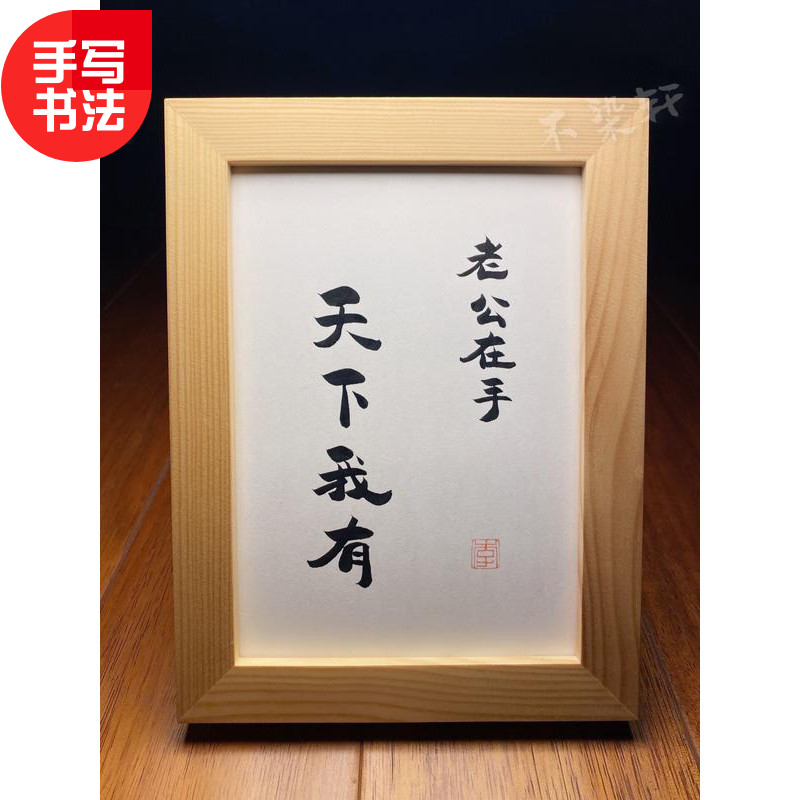 手写
书法
不染轩
老公在手
天下我有